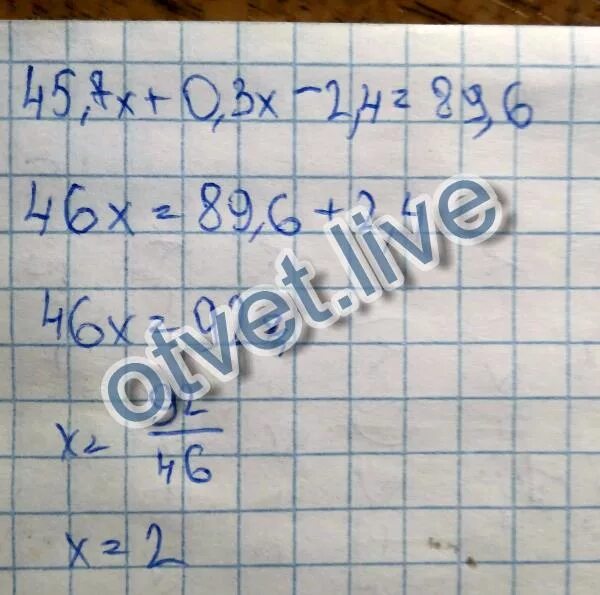 45,7x + 0,3x - 2,4 = 89,6
46x = 89,6 + 2,4
46x = 92
x = 92/46
x = 2
otvet.live